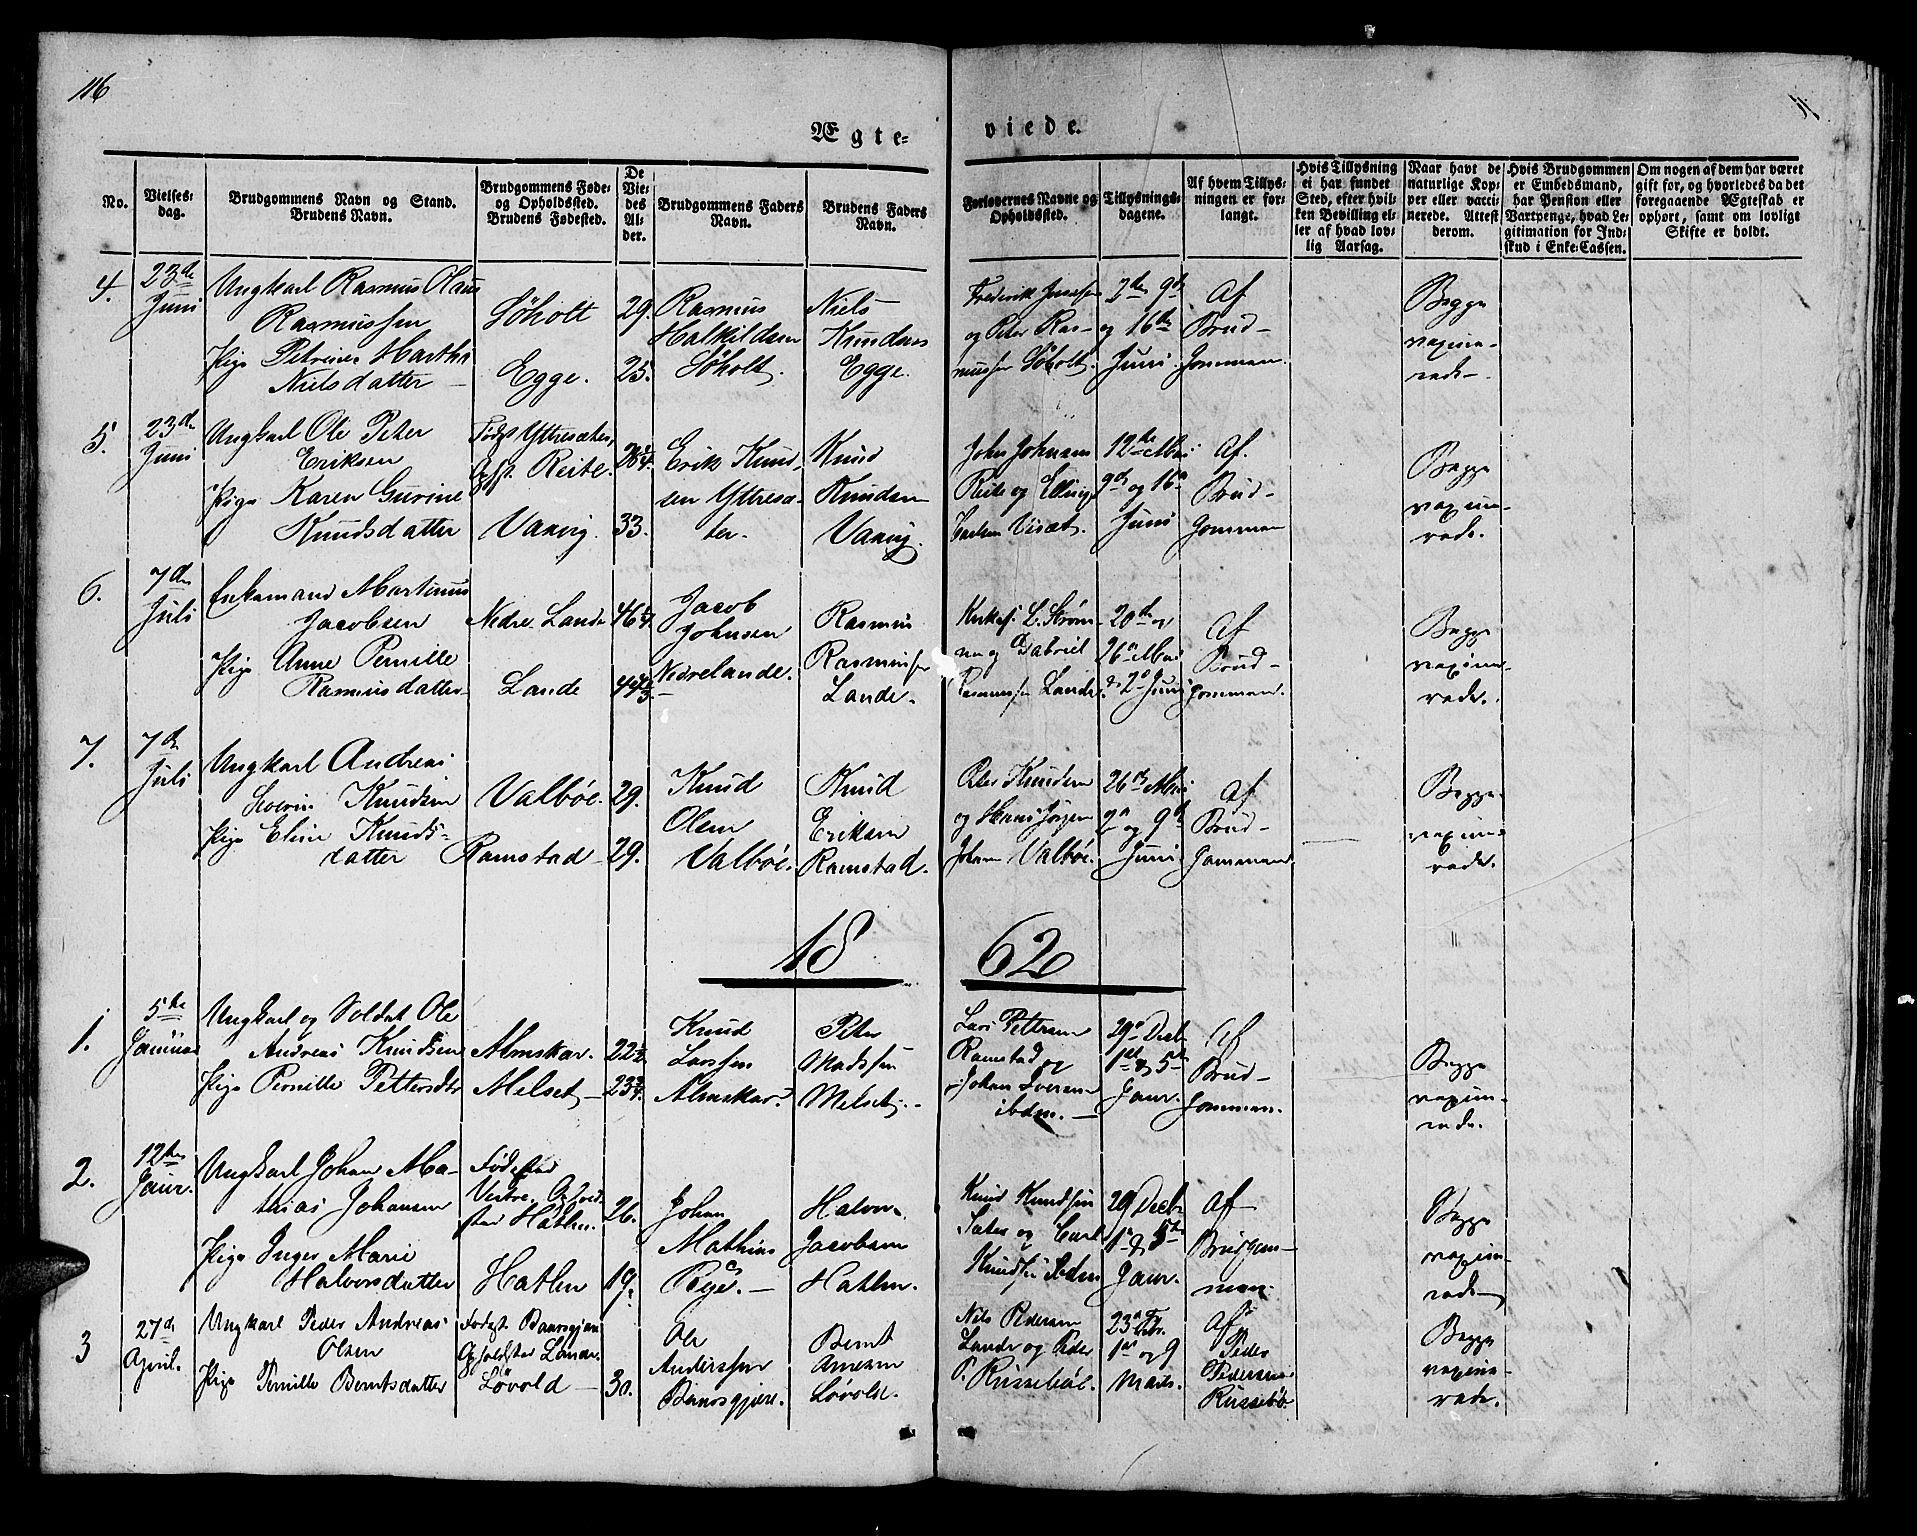 116
Ægte-
viede.
No.
Vielses-
dag.
Brudgommens Navn og Stand.
Brudens Navn.
Brudgommens Føde-
og Opholdssted.
Brudens Fødested.
De
Vie-
des
Al-
der.
Brudgommens Faders
Navn.
Brudens Faders
Navn.
Forlovernes Navne og
Opholdssted.
Tillysnings-
dagene.
Af hvem Tillys-
ningen er for-
langt.
Hvis Tillysning
ei har fundet
Sted, efter hvil-
ken Bevilling el-
ler af hvad lov-
lig Aarsag.
Naar havt de
naturlige Kop-
per eller vacci-
nerede. Attest
derom.
Hvis Brudgommen
er Embedsmand,
har Pension eller
Vartpenge, hvad Le-
gitimation for Ind-
skud i Enke-Cassen.
Om nogen af dem har været
gift før, og hvorledes da det
foregaaende Ægteskab er
ophørt, samt om lovligt
Skifte er holdt.
4.
23de
Juni
Ungkarl Rasmus Olaus
Rasmussen
Pige Petrine Marthe
Nielsdatter
Söholt
Egge.
29.
25.
Rasmus
Halkildsen
Söholt.
Niels
Knudsen
Egge.
Frederik
og Peter Ras-
mussen Söholt.
2den 9de
og 16de
Juni
Af
Brud-
gommen.
Begge
vaxine-
rede.
5.
23de
Juni
Ungkarl Ole Peter
Eriksen
Pige Karen Gurine
Knudsdatter
Födt Yttresæter,
Reite.
Vaxvig.
33.
Erik Knud-
sen Yttresæ-
ter.
Knud
Knudsen
Vaxvig.
John Johnsen
Reite og Elling
12te Mai
9de og 16de
Juni
Af.
Brud-
gommen
Begge
vaxine-
rede.
6.
7de
Juli
Enkemand Martinus
Jacobsen
Pige Anne Pernille
Rasmusdatter
Nedre Lande
Lande
Jacob
Johnsen
Nedrelande.
Rasmus
Rasmussen
Lande.
Kirkes. L. Ström-
og Gabriel
Rasmussen Lande.
20de og
26de Mai
& 2de Juni
Af
Brud-
gommen.
Begge
vaxine-
rede.
7.
7de
Juli
Ungkarl Andreas
Severin Knudsen
Pige Eline Knuds-
datter
Valböe.
Ramstad
29.
29.
Knud
Olsen
Valböe.
Knud
Eriksen
Ramstad.
Knudsen
og Hans Jörgen
Johan Valböe.
26de Mai
2de og 9de
Juni
Af
Brud-
gommen.
Begge
vaxine-
rede.
18 62
1.
5te
Januar
Ungkarl og Soldat Ole
Andreas Knudsen
Pige Pernille Pettersdtr
Almskar.
Melset
22½
23¾
Knud
Larssen
Almskar.
Peter
Madssen
Melset.
Lars Pettersen
Ramstad og
Johan Iversen
ibdm.
29de Decb
1ste & 5te
Janr.
Af
Brud-
gommen.
Begge
vaxine-
rede.
2.
12te
Janr.
Ungkarl Johan Ma-
thias Johansen
Pige Inger Marie
Halvorsdatter
Födested
Hatlen.
Hatlen
26.
19.
Johan
Mathias
Halvor
Jacobsen
Hatlen.
Knud Knudssen
Sæter og Carl
Knudsen ibdm
29 Decb
1ste & 5te
Janr.
Af
Brudgom-
men.
Begge
vaxine-
rede
3
27de
April.
Ungkarl Peder Andreas
Olsen
Pige Pernille Berntsdatter
Födest
Opholdsted Lande.
Lövold
30.
Ole
Anderssen
Bernt
Arnesen
Lövold.
Nils Pedersen
Lande og Peder
P. Russeböl.
23de Feb.
1ste og 9
Marts.
Af
Peder
Pedersen
Russeböl
Begge
vaxine-
rede.